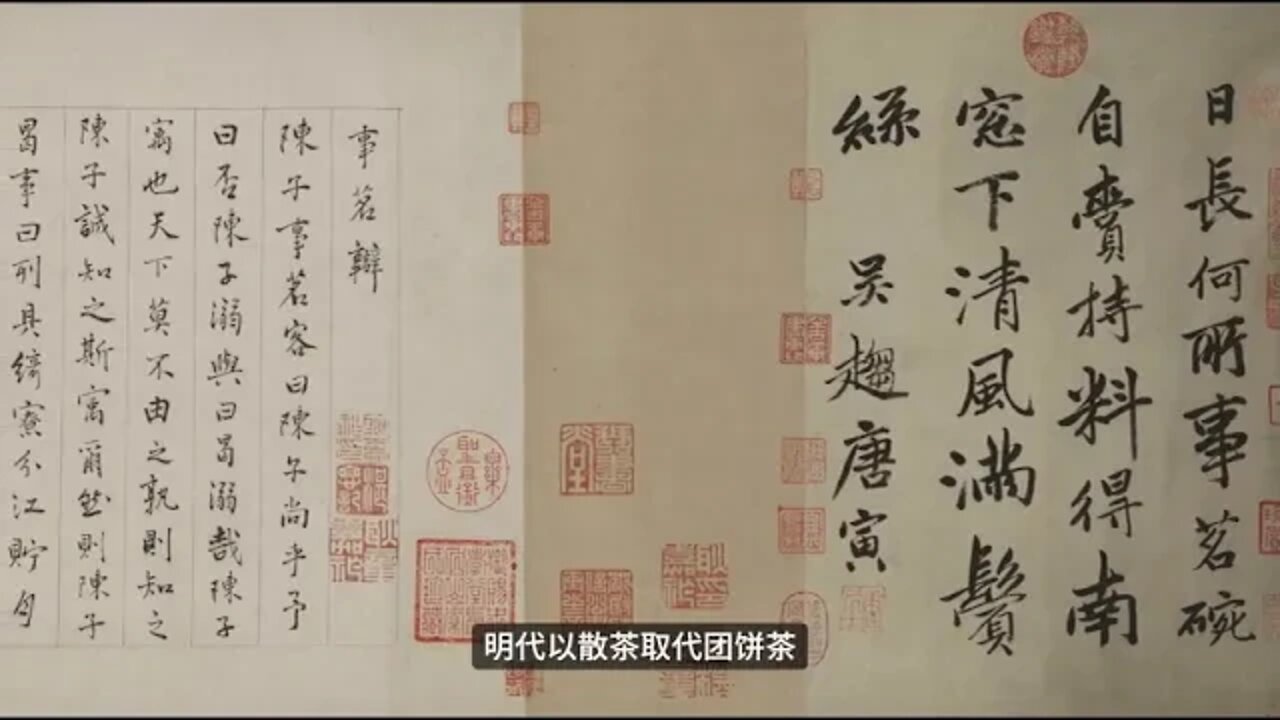 日長何所事茗碗
自賷持料得南
窓下清風滿鬢
絲 吴趨唐寅
事茗辯
陳子事茗客曰陳子尚乎予
曰否陳子溺與曰曷溺哉陳子
寓也天下莫不由之孰則知之
陳子誠知之斯寓爾然則陳子
曷事曰列具綺寮分江貯月
明代以散茶取代团饼茶